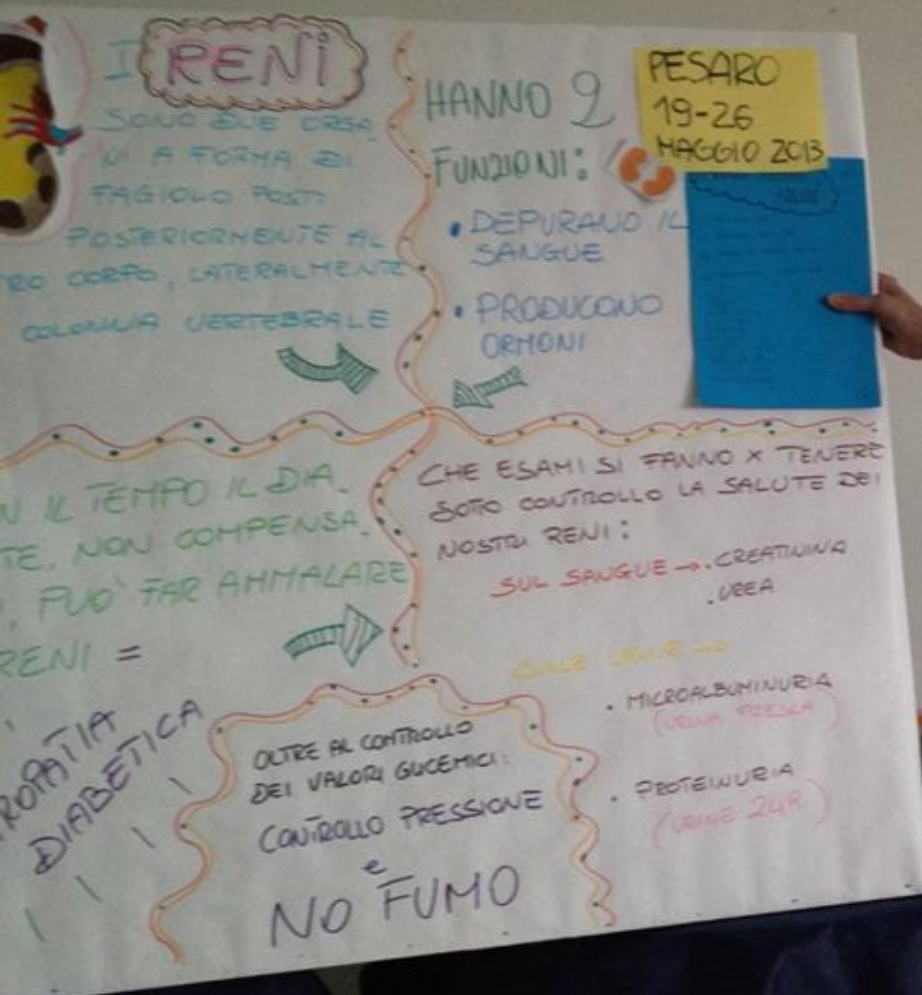 I RENI
SONO DUE ORGA
NI A FORMA DI
FAGIOLO POSTI
POSTERIORMENTE AL
TRO CORPO, LATERALMENTE
COLONNA VERTEBRALE
HANNO 2
FUNZIONI:
• DEPURANO IL
SANGUE
• PRODUCONO
ORMONI
PESARO
19-26
MAGGIO 2013
N IL TEMPO IL DIA
TE, NON COMPENSA.
, PUO' FAR AMMALARE
RENI =
ROPATIA
DIABETICA
CHE ESAMI SI FANNO X TENERE
SOTTO CONTROLLO LA SALUTE DEI
NOSTRI RENI:
SUL SANGUE → . CREATININA
. UREA
SULLE URINE →
. MICROALBUMINURIA
(URINA FRESCA)
. PROTEINURIA
(URINE 24h)
OLTRE AL CONTROLLO
DEI VALORI GLICEMICI:
CONTROLLO PRESSIONE
e
NO FUMO